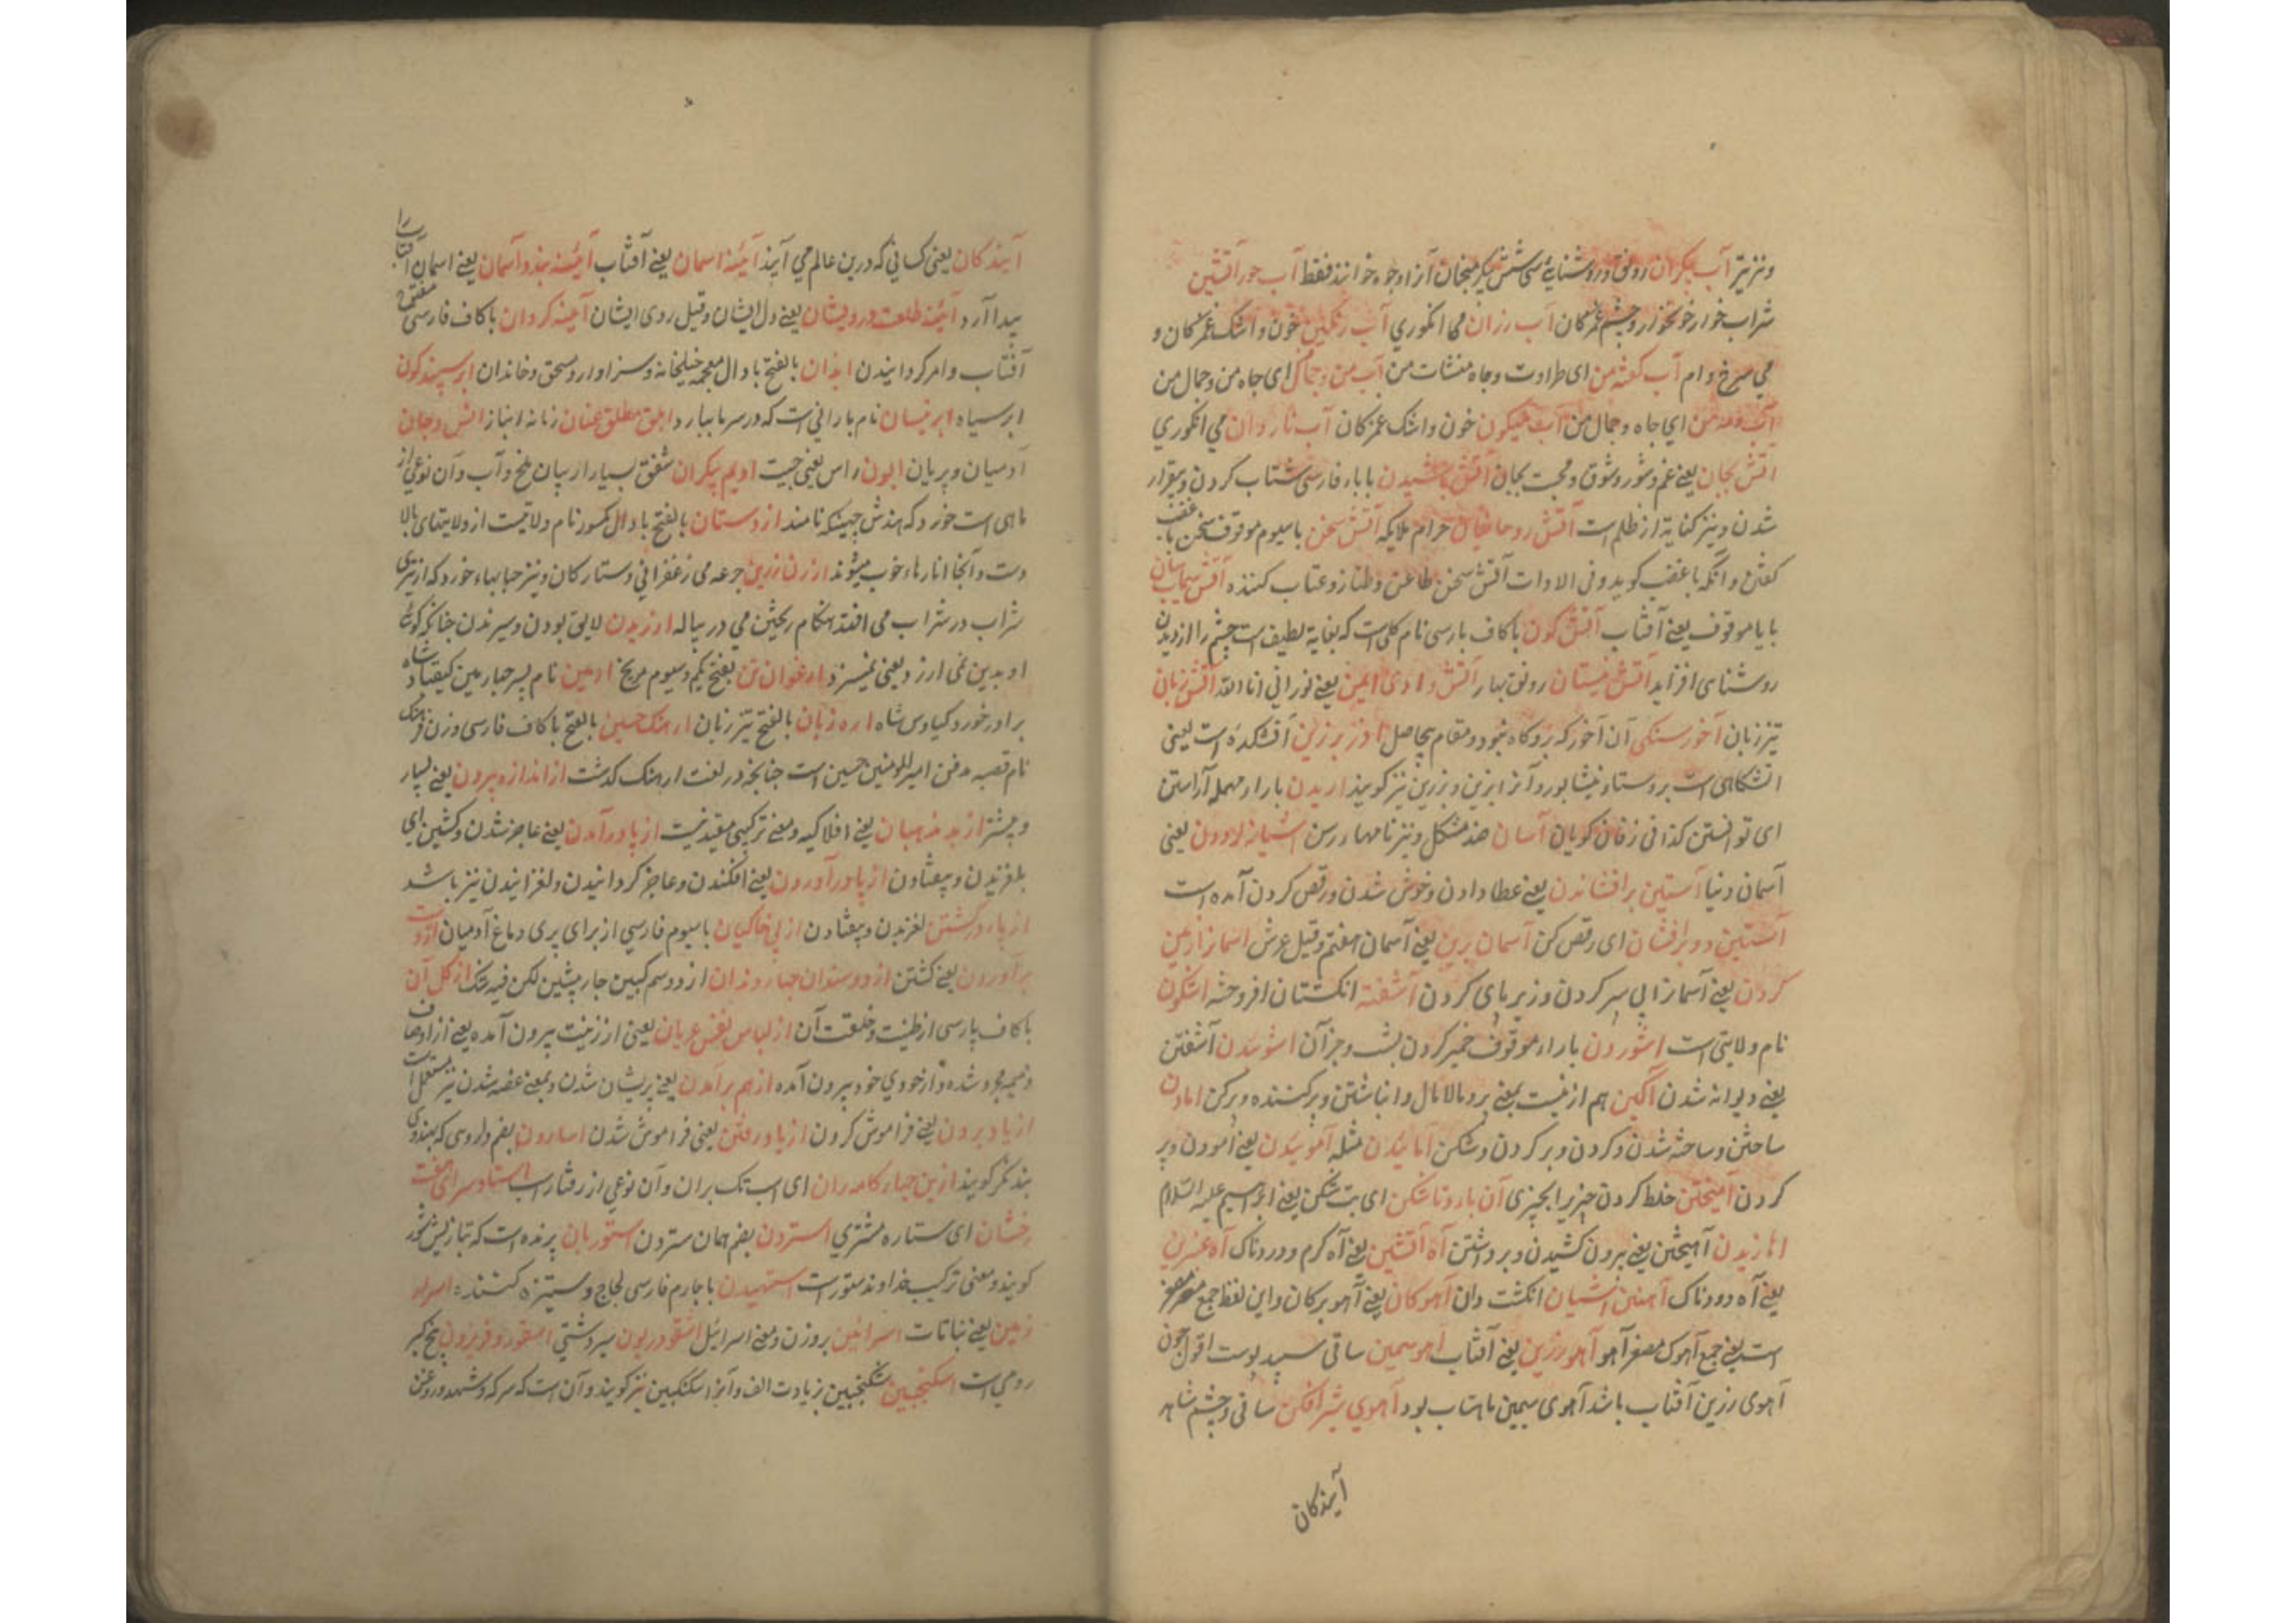 ونیز تیر آب پیکران رونق و روشنایی شش پیکر منجان آنرا وجوه خوانند فقط آب جور آتشین
شراب خوار خونخوار و چشم غمزکان آب رزان می انگوری آب رنگین خون و اشک غمزکان و
می سرخ وام آب کفته من ای طراوت و جاه منشات من آب من و جمال ای جاه من و جمال من
ای جاه و جمال من آب میگون خون و اشک غمزکان آب نار دان می انگوری
آتش بجان یعنی غم و شور و شوق و محبت بجان آتش پاشیدن با باء فارسی شتاب کردن و بیقرار
شدن و نیز کنایة از ظلم است آتش روحانیان حرام ملایکه آتش سخن با سیوم موقوف سخن با غضب
گفتن و آنکه با غضب کوید وفی الادات آتش سخن طاعن و طناز و عتاب کننده آتش سیماب سان
با یا موقوف یعنی آفتاب آتش کون با کاف پارسی نام کلی است که بغایة لطیف است چشم را از دیدن
روشنای افزاید آتش نیستان رونق بهار آتش وادی ایمن یعنی نورانی انا الله آتش زبان
تیز زبان آخور سنکی آن آخور که برو کاه نبود و مقام بیحاصل آذر برزین آتشکده است یعنی
آتشکاهی است بروستاء نیشابور و آنرا برین و بزرین نیز کویند اریدن با راء مهمله آراستن
ای توانستن کذا فی زفان کویان آسان ضد مشکل و نیز نامهاء رسن آشیانه لادون یعنی
آسمان دنیا آستین برافشاندن یعنی عطا دادن و خوش شدن و رقص کردن آمده است
آستین دو برافشان ای رقص کن آسمان برین یعنی آسمان هفتم و قیل عرش آسمانرا زمین
کردن یعنی آسمانرا پی سپر کردن و زیر پای کردن آشفته انکشتان افروخته اشکون
نام ولایتی است آشوردن با راء موقوف خمیر کردن بشب و جز آن آشوبیدن آشفتن
یعنی دیوانه شدن آکین هم از نیست بمعنی پر و مالامال و انباشتن و پر کننده و پر کن امادن
ساختن و ساخته شدن و کردن و پر کردن و شکن آمائیدن مثله آمویندن یعنی آمودن و پر
کردن آمیختن خلط کردن چیزی را بچیزی آن بار و ناشکن ای بت شکن یعنی ابراهیم علیه السلام
اهازیدن آهیختن یعنی بیرون کشیدن و برداشتن آه آتشین یعنی آه کرم و دردناک آه عنبرین
یعنی آه دودناک آهنین آشیان انکشت دان آهوکان یعنی آهو برکان و این لفظ جمع مصغر
است یعنی جمع آهوک مصغر آهو آهو زرین یعنی آفتاب آهو سیمین ساقی سپید پوست اقول چون
آهوی زرین آفتاب باشد آهوی سیمین ماهتاب بود آهوی شیر افکن ساقی و چشم شاهد
آیندکان
آیندکان یعنی کسانی که درین عالم می آیند آئینه آسمان یعنی آفتاب آئینه بند و آسمان یعنی آسمان آفتاب را
پیدا آرد آئینه طلعت درویشان یعنی دل ایشان و قیل روی ایشان آئینه کردان با کاف فارسی مفتوح
آفتاب و امر کردانیدن ابدان بالفتح با دال معجمه خیلخانه و سزاوار و مستحق و خاندان ابر سپند کون
ابر سیاه ابر نیسان نام بارانی است که در سرما ببارد ابلق مطلق عنان زمانه انباز انس و جان
آدمیان و پریان ابون راس یعنی جیت ادیم پیکران شفق بسیار از بیان طخ و آب و آن نوعی از
ماهی است خورد که هندش جهینکه نامند اردستان بالفتح با دال مکسور نام ولایتیست از ولایتهای بالا
دست و آنجا انارهاء خوب میشوند ارزن زرین جرعه می زعفرانی و ستارکان و نیز حبابهاء خورد که از تیری
شراب در شراب می افتد هنکام ریختن می در پیاله ارزیدن لایق بودن و سیرزدن چنانکه کوئی
او بدین نمی ارزد یعنی نمیسزد ارغوان تن بفتح یکم و سیوم مریخ ارمین نام پسر چهارمین کیقباد شاه
برادر خورد کیاوس شاه اره زبان بالفتح تیز زبان ارهنک حسین بالفتح با کاف فارسی وزن فرهنک
نام قصبه مدفن امیر المومنین حسین است چنانچه در لغت ارهنک کذشت از اندازه بیرون یعنی بسیار
و بیشتر از بد مذهبان یعنی افلاکیه و معنی ترکیبی مقید نیست از پا درآمدن یعنی عاجز شدن و کشتن ای
بلغزیدن و بیفتادن از پا درآوردن یعنی افکندن و عاجز کردانیدن و لغزانیدن نیز باشد
از پا درکشتن لغزیدن و بیفتادن از پی خاکیان با سیوم فارسی از برای پری دماغ آدمیان از دست
برآوردن یعنی کشتن از دوستان چهار وندان از دوسم کبین چار پیشین لکن فیه شک از کل آن
با کاف پارسی از طینت و خلقت آن از لباس نفس عریان یعنی از زینت بیرون آمده یعنی از اوصاف
ذمیمه مجرد شده و از خودی خود بیرون آمده از هم برآمدن یعنی پریشان شدن و بمعنی غصه شدن نیز مستعمل است
از یاد بردن یعنی فراموش کردن از یاد رفتن یعنی فراموش شدن اسارون بضم داروی که بهندوی
بندتکر کویند ازین چهار کامه ران ای اسب تک بران و آن نوعی از رفتار اسب استاد سرای هفت
رخشان ای ستاره مشتری استردن بضم همان ستردن استوربان پرنده است که بتازیش شور
کویند و معنی ترکیب خداوند ستور است استهیدن با جارم فارسی لجاج و ستیزه کنند اسرار
زمین یعنی نباتات اسرائین بروزن و معنی اسرائیل اسقوردیون سیر دشتی اسقوردوفریدون بیخ کبر
رومی است اسکنجبین سکنجبین بزیادت الف و آنرا سکنکبین نیز کویند و آن است که سرکه و شهد و روغن